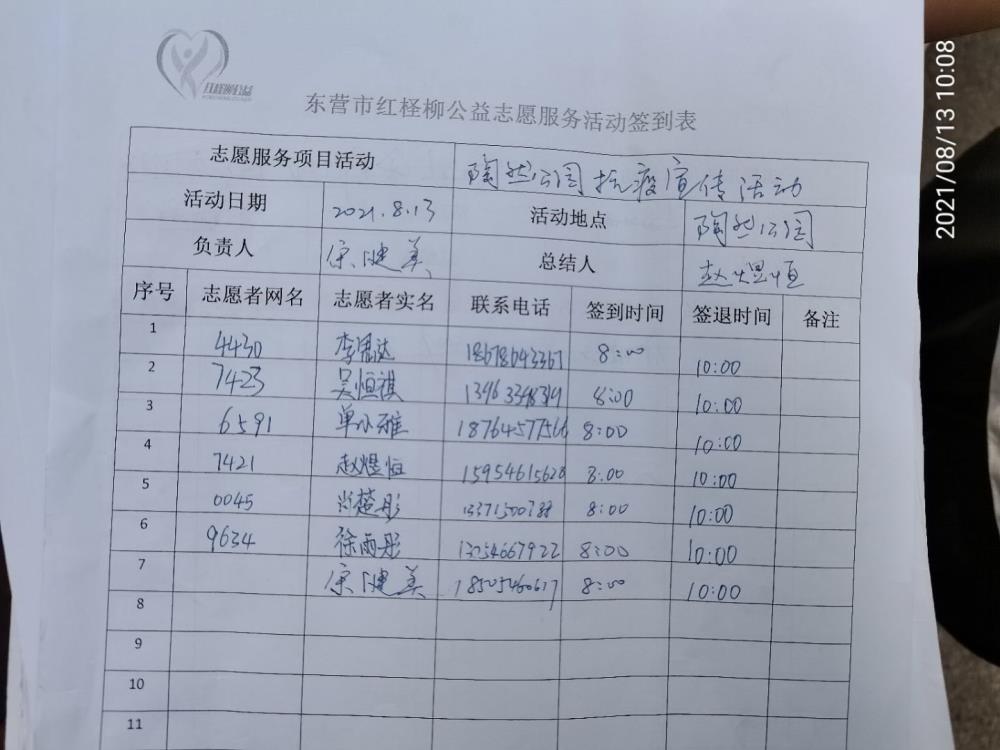 红柽柳公益
东营市红柽柳公益志愿服务活动签到表
志愿服务项目活动 陶然公园抗疫宣传活动
活动日期 2021.8.13 活动地点 陶然公园
负责人 宗健美 总结人 赵煜恒
序号 志愿者网名 志愿者实名 联系电话 签到时间 签退时间 备注
1 4430 18678643367 8:00 10:00
2 7423 吴恒祺 8:00 10:00
3 6591 单小雅 18764577566 8:00 10:00
4 7421 赵煜恒 15954615628 8:00 10:00
5 0045 尚楚彤 8:00 10:00
6 9634 徐雨彤 8:00 10:00
7 宗健美 8:00 10:00
8
9
10
11
2021/08/13 10:08